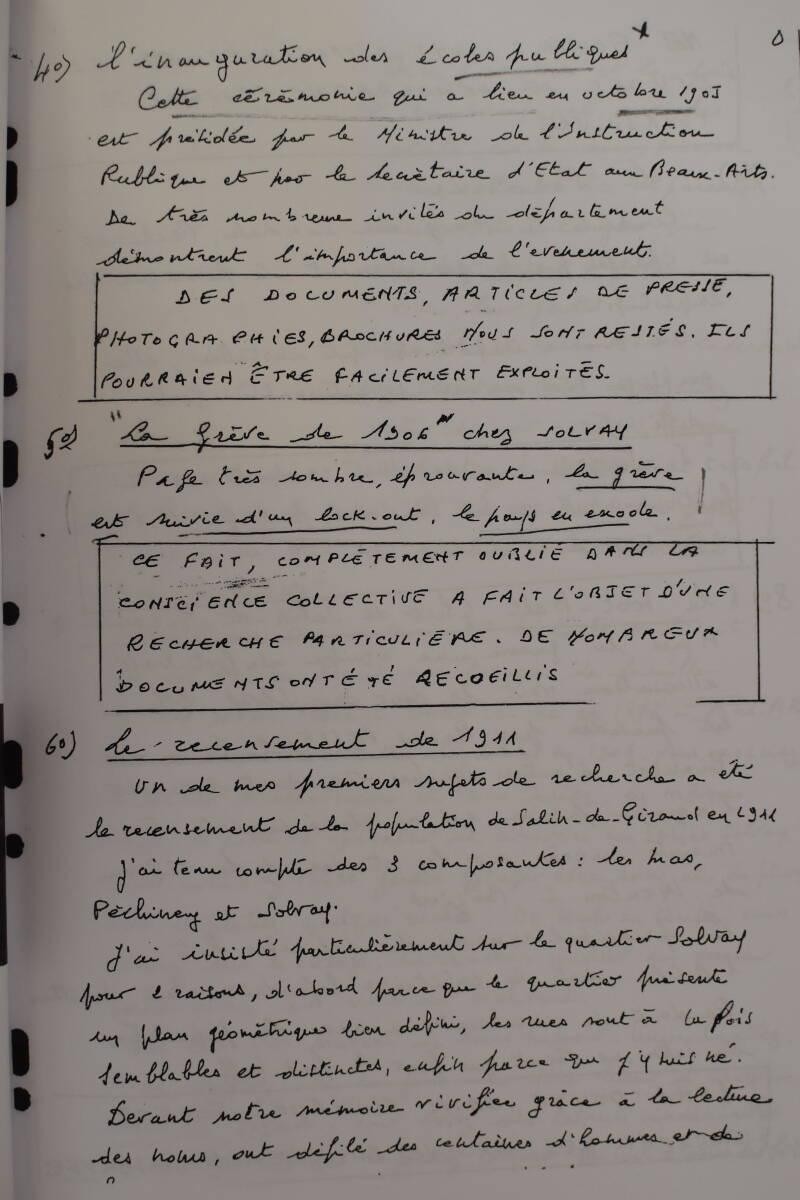 4°) L'inauguration des écoles publiques
Cette cérémonie qui a lieu en octobre 1905
est présidée par le Ministre de l'Instruction
Publique et par le Secrétaire d'Etat aux Beaux-Arts.
De très nombreux invités du département
démontrent l'importance de l'evenement.
DES DOCUMENTS, ARTICLES DE PRESSE,
PHOTOGRAPHIES, BROCHURES NOUS SONT RESTÉS. ILS
POURRAIEN ÊTRE FACILEMENT EXPLOITÉS.
5°) "La Grève de 1906" chez SOLVAY
Page très sombre, éprouvante, la grève
est suivie d'un lock-out, le pays en exode.
CE FAIT, COMPLÈTEMENT OUBLIÉ DANS LA
CONSCIENCE COLLECTIVE A FAIT L'OBJET D'UNE
RECHERCHE PARTICULIÈRE. DE NOMBREUX
DOCUMENTS ONT ÉTÉ RECOEILLIS
6°) Le recensement de 1911
Un de mes premiers sujets de recherche a été
le recensement de la population de Salin-de-Giraud en 1911
J'ai tenu compte des 3 composantes : les mas,
Péchiney et Solvay.
J'ai insisté particulièrement sur le quartier Solvay
pour 2 raisons, d'abord parce que le quartier présente
un plan géométrique bien défini, les rues sont à la fois
semblables et distinctes, enfin parce que j'y suis né.
Devant notre mémoire vivifiée grâce à la lecture
des noms, ont défilé des centaines d'hommes et de